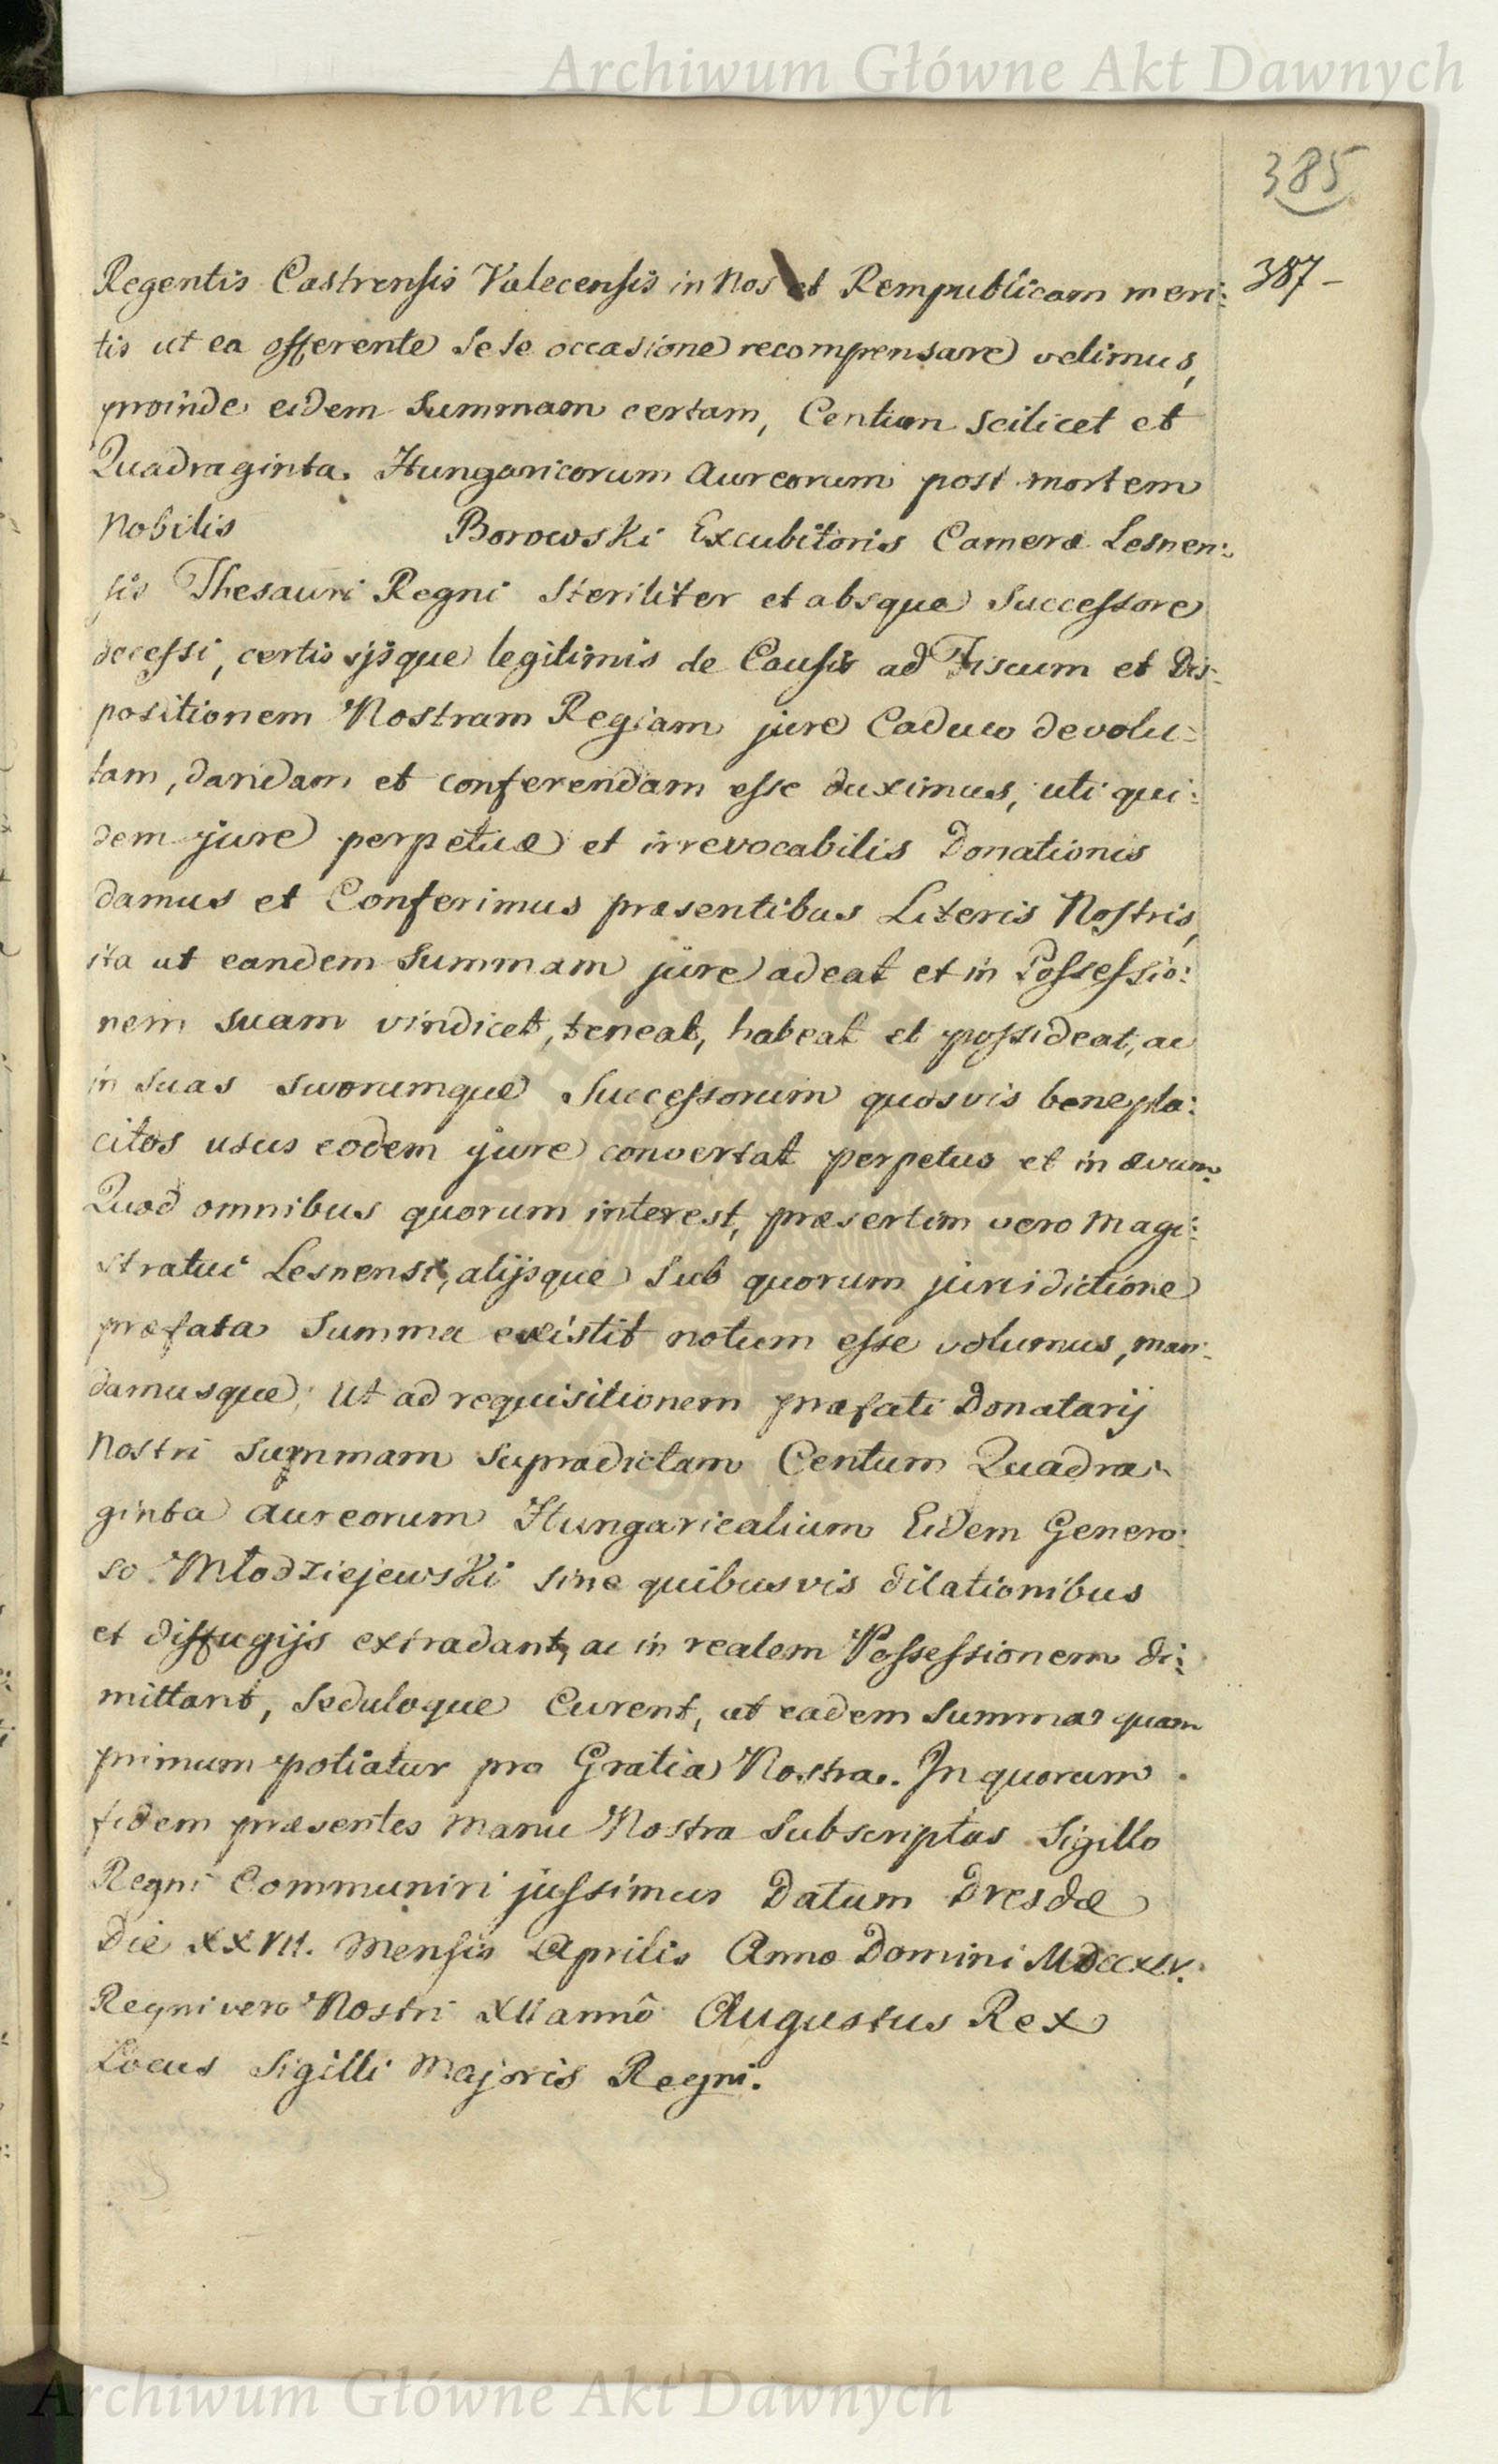 Archiwum Główne Akt Dawnych
385
387-
Regentis Castrensis Valecensis in Nos et Rempublicam meri:
tis ut ea offerente sese occasione recompensare velimus,
proinde eidem Summam certam, Centum scilicet et
Quadraginta Hungaricorum Aureorum post mortem
Nobilis Borowski Excubitoris Cameræ Lesnen:
sis Thesauri Regni Steriliter et absque Successore
decessi, certis ijsque legitimis de Causis ad Fiscum et Dis-
positionem Nostram Regiam jure Caduco devolu-
tam, dandam et conferendam esse duximus, uti qui:
dem jure perpetuæ et irrevocabilis Donationis
damus et Conferimus præsentibus Literis Nostris,
ita ut eandem Summam jure adeat et in Possessio:
nem suam vindicet, teneat, habeat et possideat, ac
in suas suorumque Successorum quosvis benepla:
citos usus eodem jure convertat perpetuo et in ævum.
Quod omnibus quorum interest, præsertim vero Magi:
stratui Lesnensi, alijsque sub quorum jurisdictione
præfata Summa existit notum esse volumus, man-
damusque; Ut ad requisitionem præfati Donatarij
Nostri Summam supradictam Centum Quadra:
ginta Aureorum Hungaricalium Eidem Genero:
so Młodziejewski sine quibusvis dilationibus
et diffugijs extradant, ac in realem Possessionem di:
mittant, seduloque Curent, ut eadem Summa quam
primum potiatur pro Gratia Nostra. In quorum
fidem præsentes Manu Nostra Subscriptas Sigillo
Regni Communiri jussimus Datum Dresdæ
Die XXVII. Mensis Aprilis Anno Domini MDCCXLV.
Regni vero Nostri XII annô Augustus Rex
Locus Sigilli Majoris Regni.
Archiwum Główne Akt Dawnych